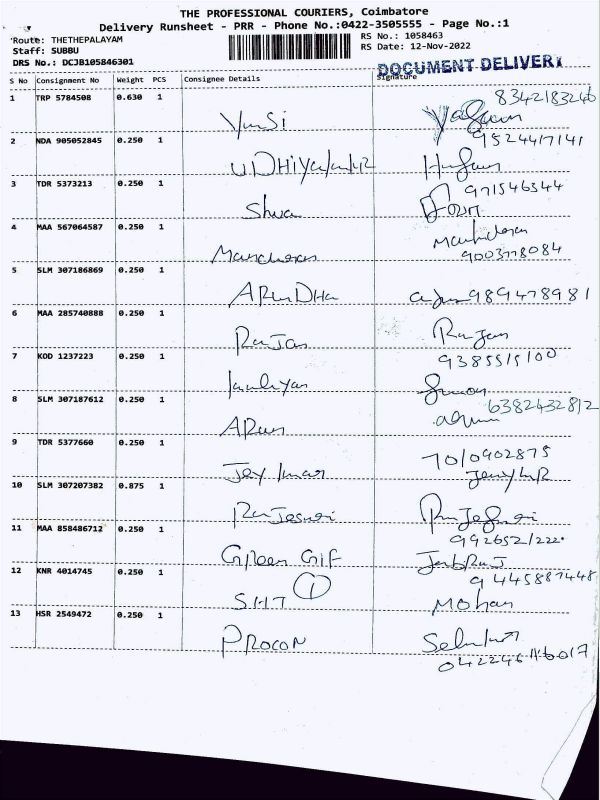 THE PROFESSIONAL COURIERS, Coimbatore
Delivery Runsheet - PRR - Phone No.:0422-3505555 - Page No.:1
Route: THETHEPALAYAM
Staff: SUBBU
DRS No.: DCJB105846301
RS No.: 1058463
RS Date: 12-Nov-2022
DOCUMENT DELIVERY
S No Consignment No Weight PCS Consignee Details Signature
1 TRP 5784508 0.630 1
8342183246
2 NDA 905052845 0.250 1
9524417141
3 TDR 5373213 0.250 1 Shiva
971546344
4 MAA 567064587 0.250 1 Manoharan
9003778084
5 SLM 307186869 0.250 1 ARUNDHA
989478981
6 MAA 285740888 0.250 1 Rajan Rajan
9385515100
7 KOD 1237223 0.250 1
8 SLM 307187612 0.250 1 ARUN
6382432812
9 TDR 5377660 0.250 1 Jey kumar
7010902875
10 SLM 307207382 0.875 1 Rajeswari Rajeswari
11 MAA 858486712 0.250 1 Green GIF
12 KNR 4014745 0.250 1 SHT 1 Mohan
9445887448
13 HSR 2549472 0.250 1 PROCON